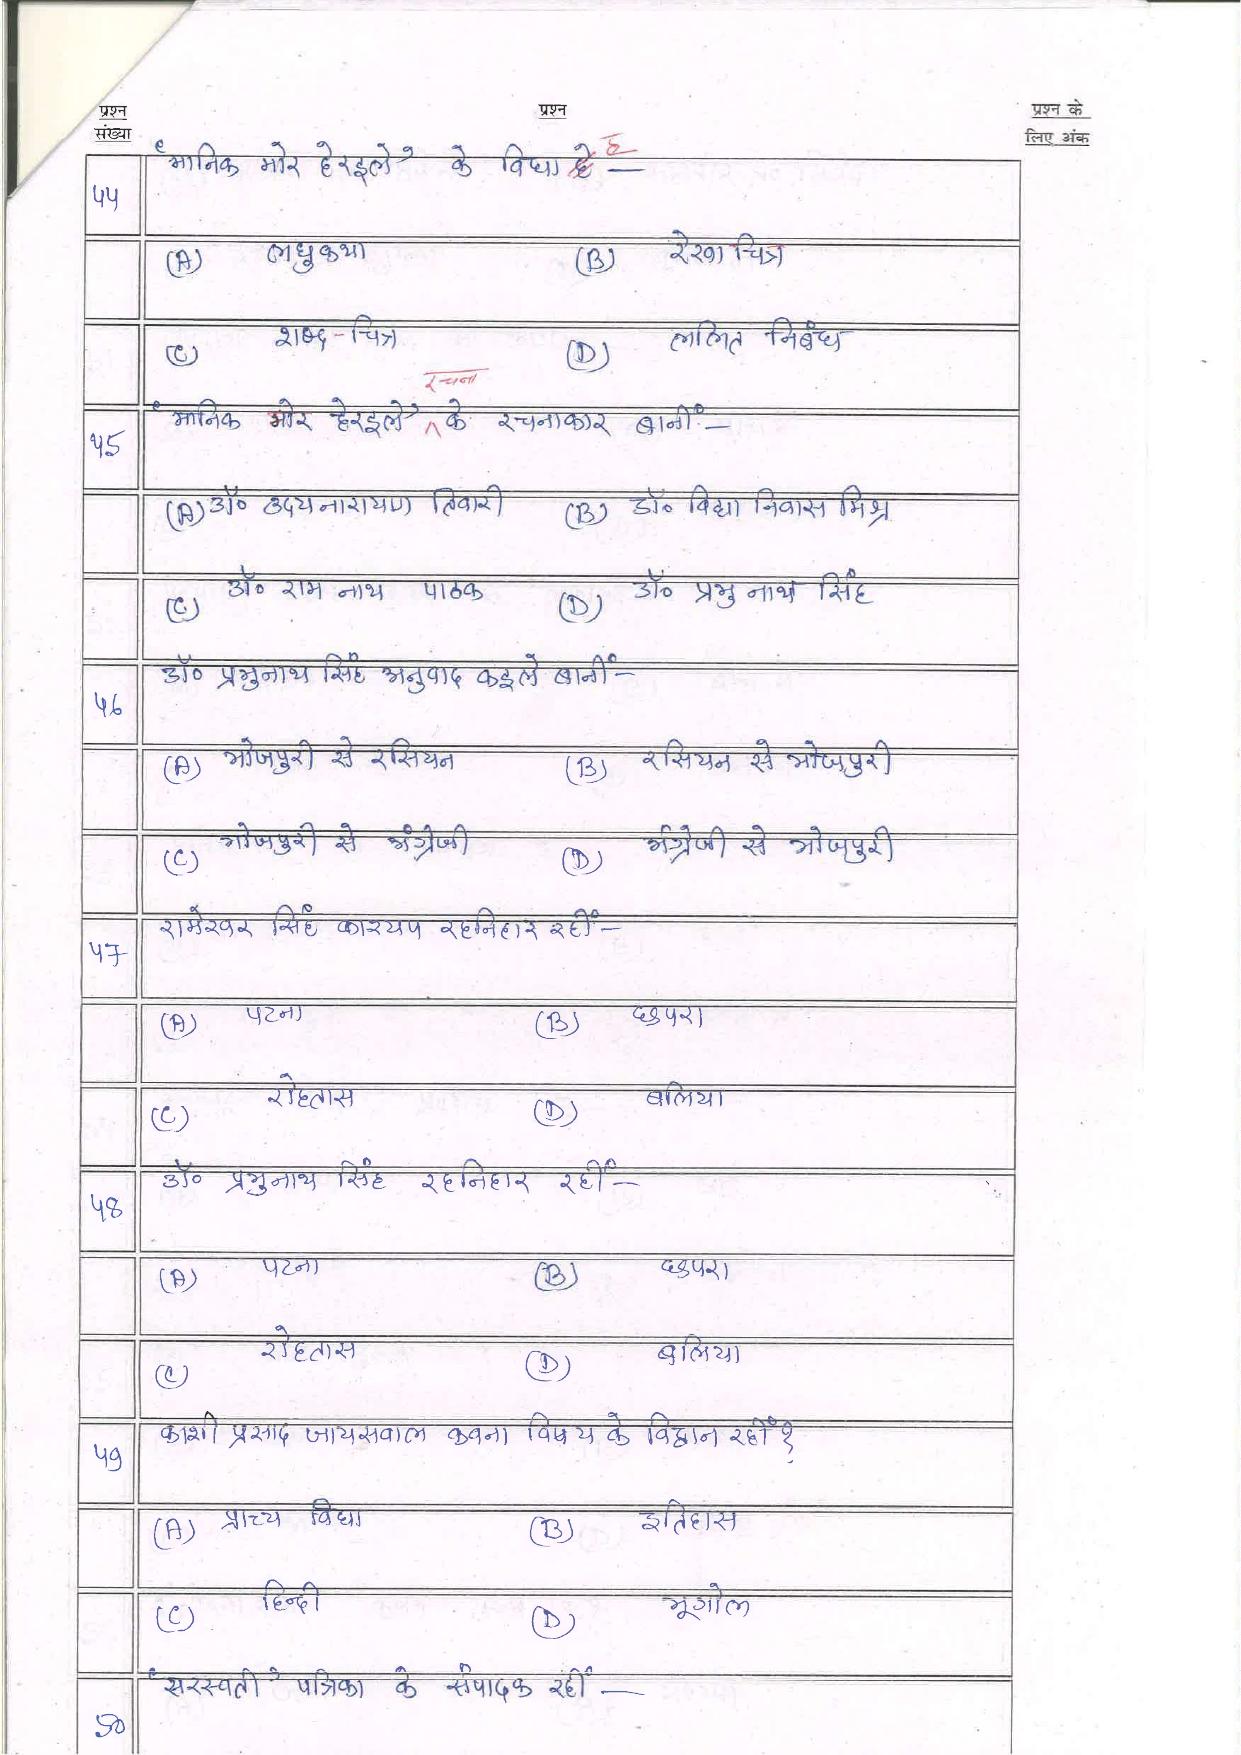 प्रश्न संख्या प्रश्न प्रश्न के लिए अंक
ह
"मानिक मोर हेरइले" के विधा है —
५५
44
(A) लघुकथा (B) रेखा चित्र
(C) शब्द-चित्र (D) ललित निबंध
रचना
45 "मानिक मोर हेरइले" के रचनाकार बानीं —
(A) डॉ० उदयनारायण तिवारी (B) डॉ० विद्या निवास मिश्र
(C) डॉ० राम नाथ पाठक (D) डॉ० प्रभु नाथ सिंह
46 डॉ० प्रभुनाथ सिंह अनुवाद कइले बानीं —
(A) भोजपुरी से रसियन (B) रसियन से भोजपुरी
(C) भोजपुरी से अंग्रेजी (D) अंग्रेजी से भोजपुरी
47 रामेश्वर सिंह काश्यप रहनिहार रहीं —
(A) पटना (B) छपरा
(C) रोहतास (D) बलिया
48 डॉ० प्रभुनाथ सिंह रहनिहार रहीं —
(A) पटना (B) छपरा
(C) रोहतास (D) बलिया
49 काशी प्रसाद जायसवाल कवना विषय के विद्वान रहीं ?
(A) प्राच्य विद्या (B) इतिहास
(C) हिन्दी (D) भूगोल
50 "सरस्वती" पत्रिका के संपादक रहीं —